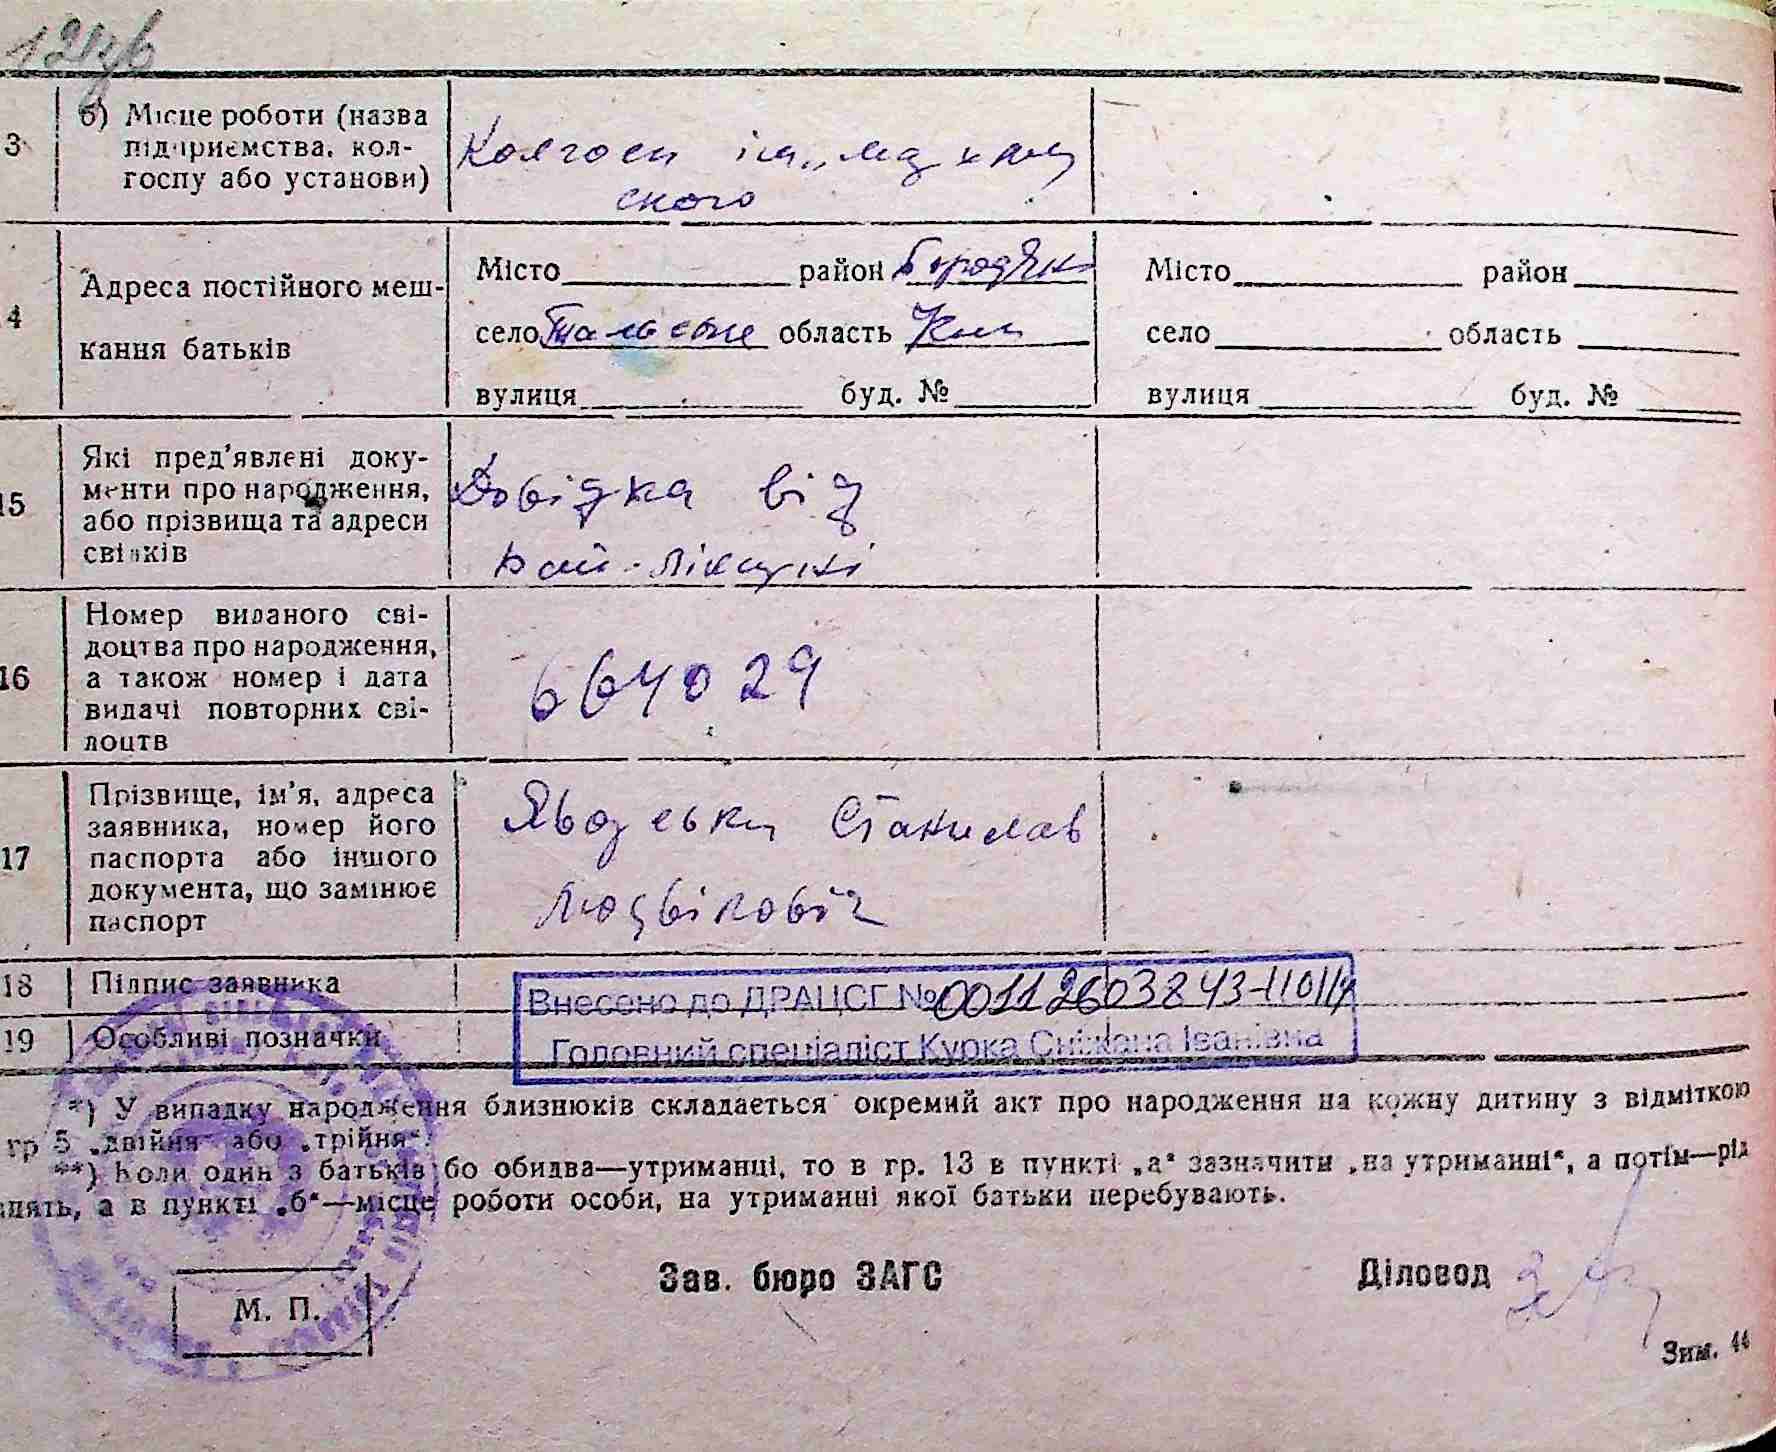 121
3 б) Місце роботи (назва
підприємства, кол-
госпу або установи)
Колгосп ім.
ского
4 Адреса постійного меш-
кання батьків
Місто район Бородян
село Тальське область Київ
вулиця буд. №
Місто район
село область
вулиця буд. №
15 Які пред'явлені доку-
менти про народження,
або прізвища та адреси
свідків
Довідка від
16 Номер виданого сві-
доцтва про народження,
а також номер і дата
видачі повторних сві-
доцтв
664029
17 Прізвище, ім'я, адреса
заявника, номер його
паспорта або іншого
документа, що замінює
паспорт
Станислав
Людвікович
18 Підпис заявника
19 Особливі позначки
Внесено до ДРАЦСГ №
Головний спеціаліст Курка Сніжана Іванівна
*) У випадку народження близнюків складається окремий акт про народження на кожну дитину з відміткою
гр 5 „двійня“ або „трійня“.
**) Коли один з батьків бо обидва—утриманці, то в гр. 13 в пункті „а“ зазначити „на утриманні“, а потім—рід
а в пункті „б“—місце роботи особи, на утриманні якої батьки перебувають.
Зав. бюро ЗАГС
Діловод
М. П.
Зим. 44